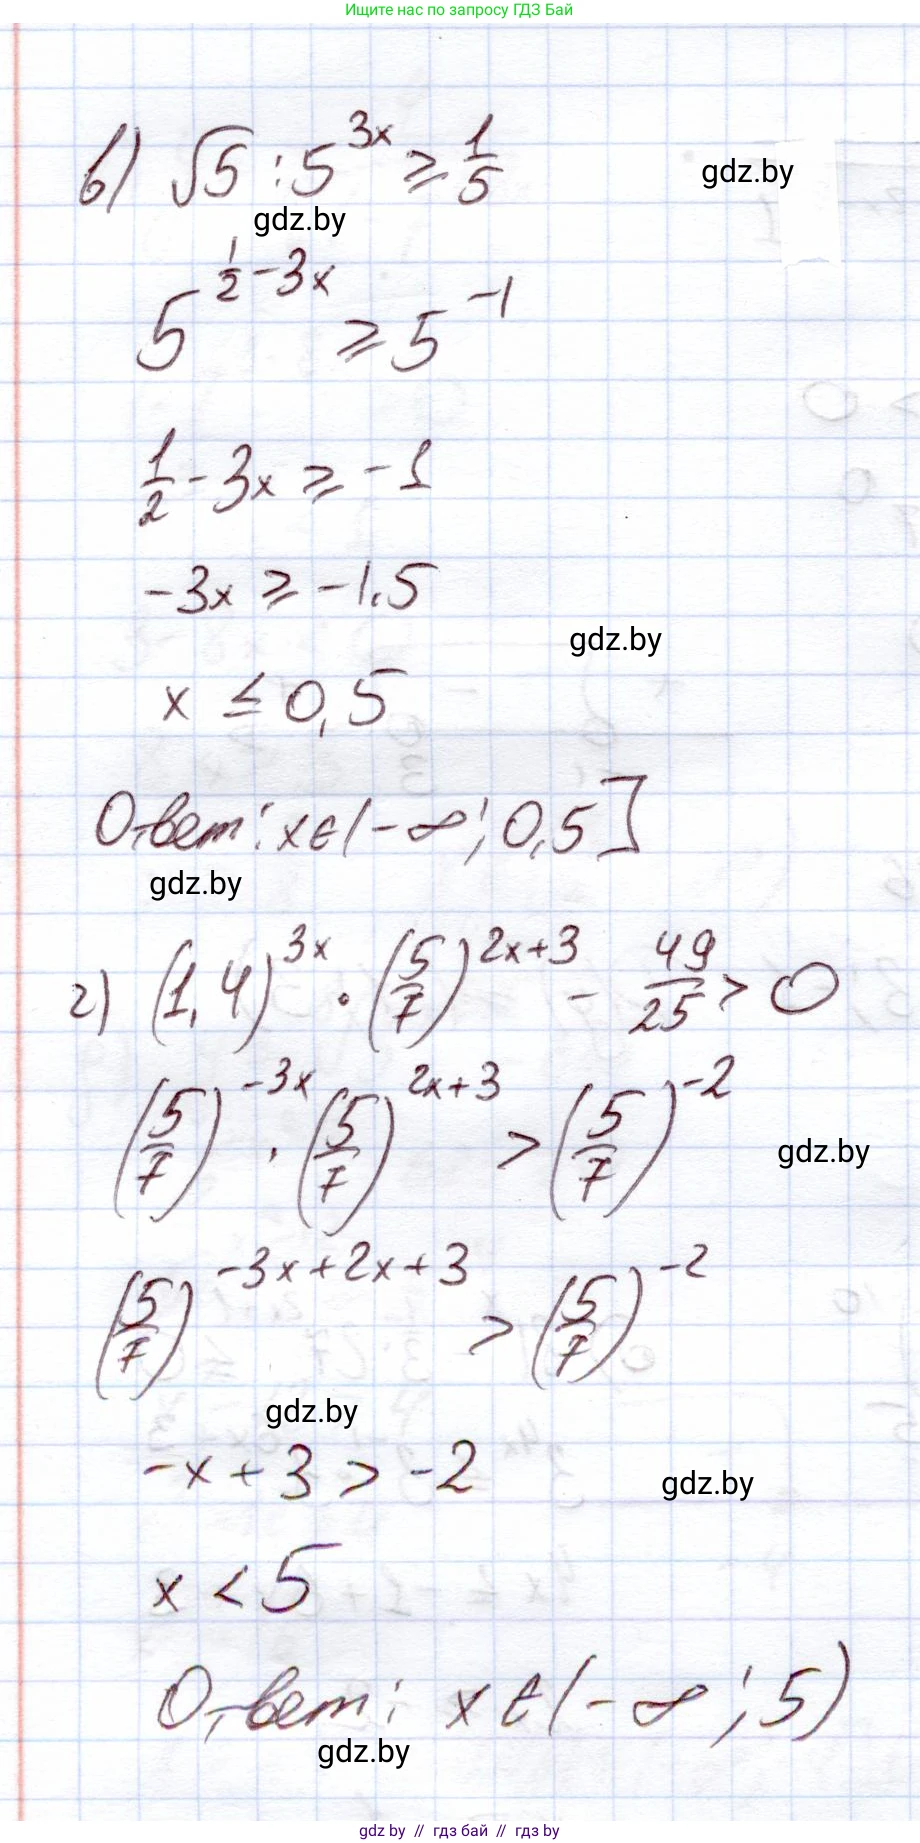 Ищите нас по запросу ГДЗ Бай
в) √5 : 5^{3x} ≥ 1/5
gdz.by
gdz.by
5^{1/2 - 3x} ≥ 5^{-1}
1/2 - 3x ≥ -1
-3x ≥ -1.5
gdz.by
x ≤ 0,5
Ответ: x∈(-∞; 0,5]
gdz.by
г) (1,4)^{3x} · (5/7)^{2x+3} - 49/25 > 0
(5/7)^{-3x} · (5/7)^{2x+3} > (5/7)^{-2}
gdz.by
(5/7)^{-3x+2x+3} > (5/7)^{-2}
gdz.by
-x + 3 > -2
gdz.by
x < 5
Ответ: x∈(-∞; 5)
gdz.by
gdz by // гдз бай // гдз by